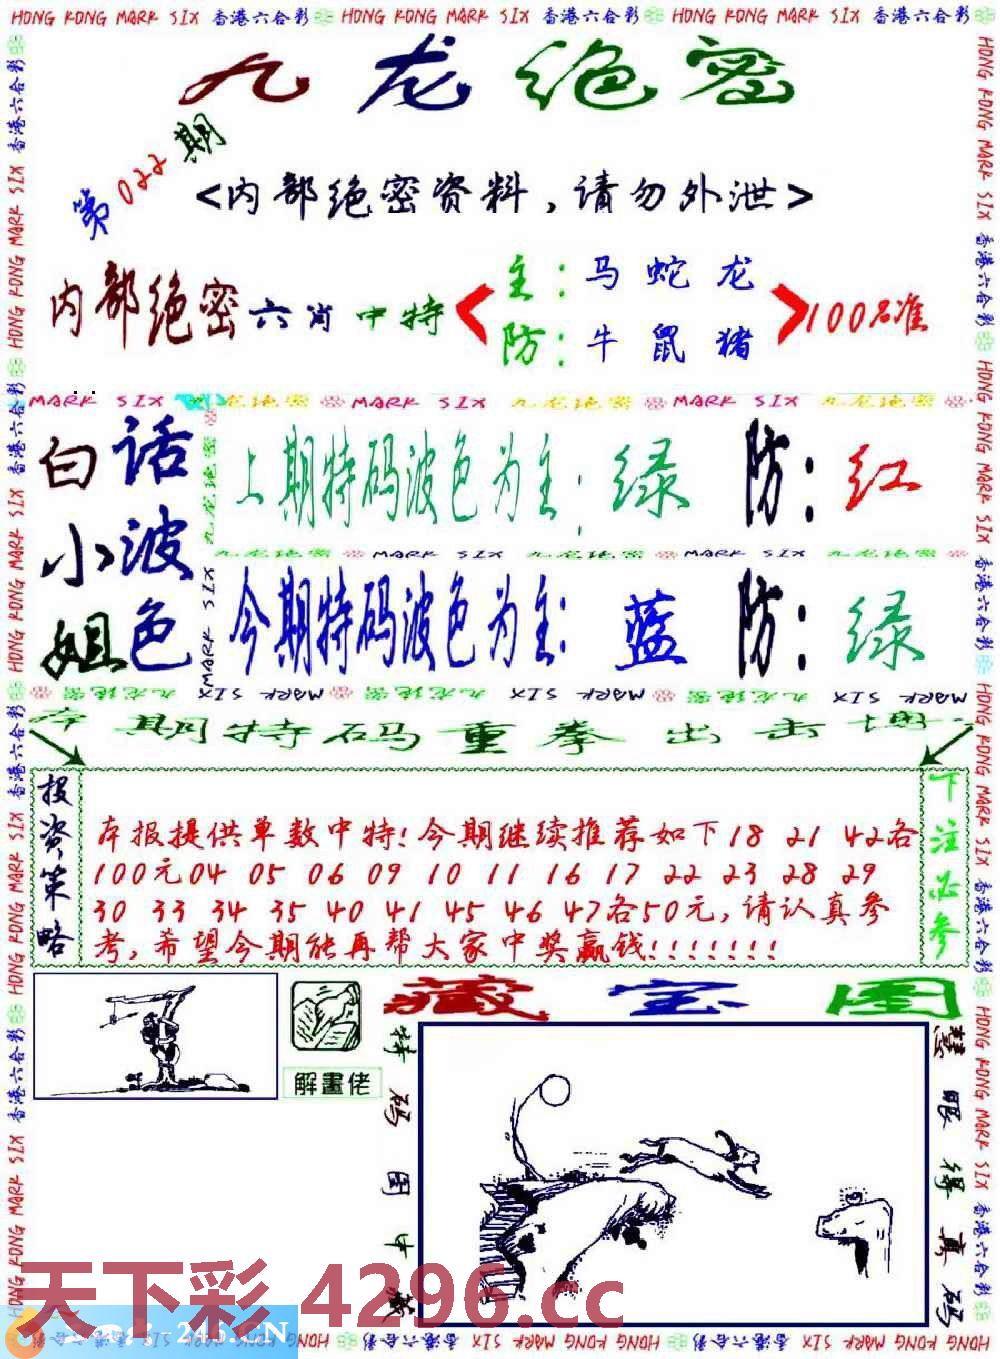 HONG KONG MARK SIX 香港六合彩 HONG KONG MARK SIX 香港六合彩 HONG KONG MARK SIX 香港六合彩
九龙绝密
第022期
<内部绝密资料,请勿外泄>
内部绝密六肖中特
主:马 蛇 龙
防:牛 鼠 猪
100%准
MARK SIX 九龙绝密 MARK SIX 九龙绝密 MARK SIX 九龙绝密
白小姐
话波色
上期特码波色为主:绿 防:红
九龙绝密 MARK SIX 九龙绝密 MARK SIX 九龙绝密
今期特码波色为主:蓝 防:绿
本期特码重拳出击
投资策略
本报提供单数中特!今期继续推荐如下18 21 42各
100元04 05 06 09 10 11 16 17 22 23 28 29
30 33 34 35 40 41 45 46 47各50元,请认真参
考,希望今期能再帮大家中奖赢钱!!!!!!!
下注必参
藏宝图
解畫佬
特码图中藏
慧眼得真码
天下彩 4296.cc
246.CN